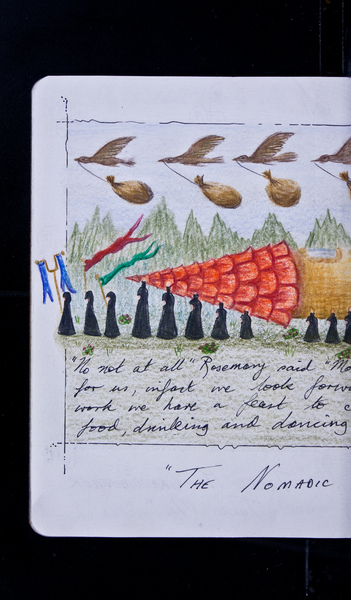 "No not at all" Rosemary said "Mo
for us, infact we look forw
work we have a feast to c
food, drinking and dancing
"THE NOMADIC